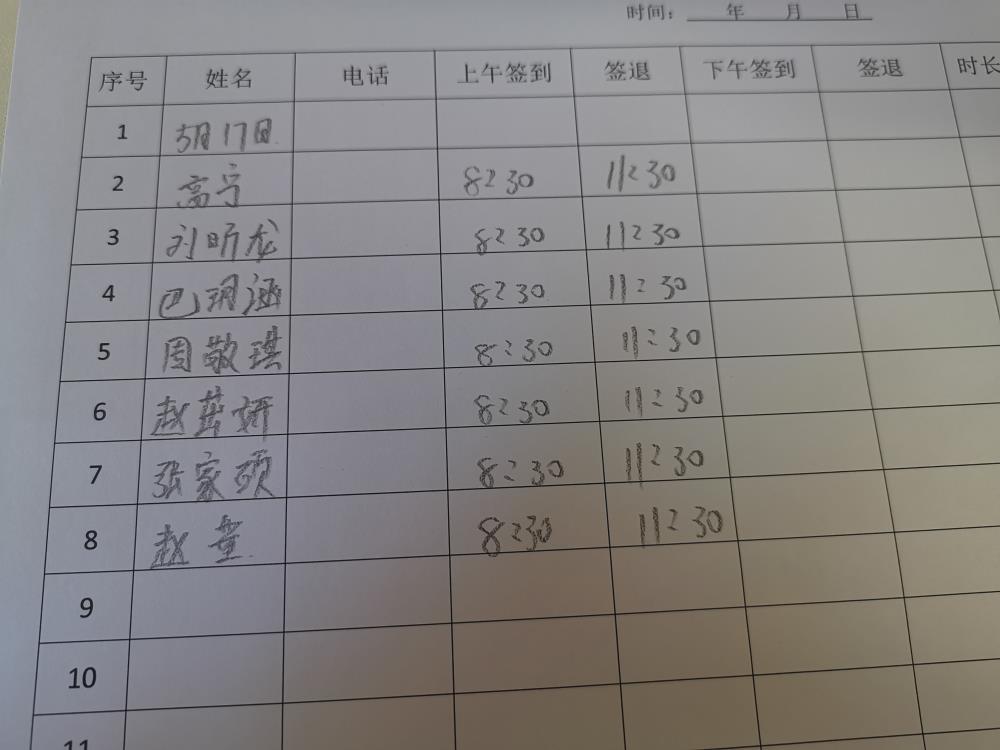 时间： 年 月 日
序号 姓名 电话 上午签到 签退 下午签到 签退 时长
1 5月17日
2 高宁 8:30 11:30
3 刘昕龙 8:30 11:30
4 巴玥涵 8:30 11:30
5 周敬琪 8:30 11:30
6 赵 妍 8:30 11:30
7 张家硕 8:30 11:30
8 赵童 8:30 11:30
9
10
11